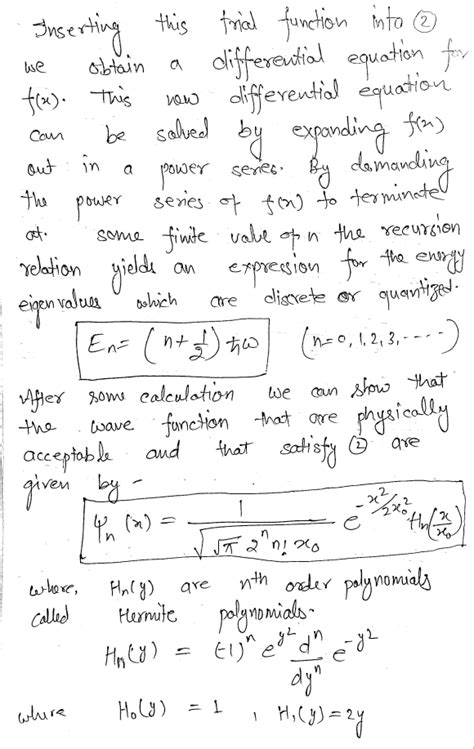 Inserting this trial function into ②
we obtain a differential equation for
f(x). This new differential equation
can be solved by expanding f(x)
out in a power series. By demanding
the power series of f(x) to terminate
at some finite value of n the recursion
relation yields an expression for the energy
eigen values which are discrete or quantized.
En = (n + 1/2) ħω (n = 0, 1, 2, 3, ----)
After some calculation we can show that
the wave function that are physically
acceptable and that satisfy ② are
given by -
ψn (x) = 1/√(√π 2^n n! x0) e^(-x²/2x0²) Hn(x/x0)
where, Hn(y) are nth order polynomials
called Hermite polynomials.
Hn(y) = (-1)^n e^(y²) d^n/dy^n e^(-y²)
where H0(y) = 1 , H1(y) = 2y